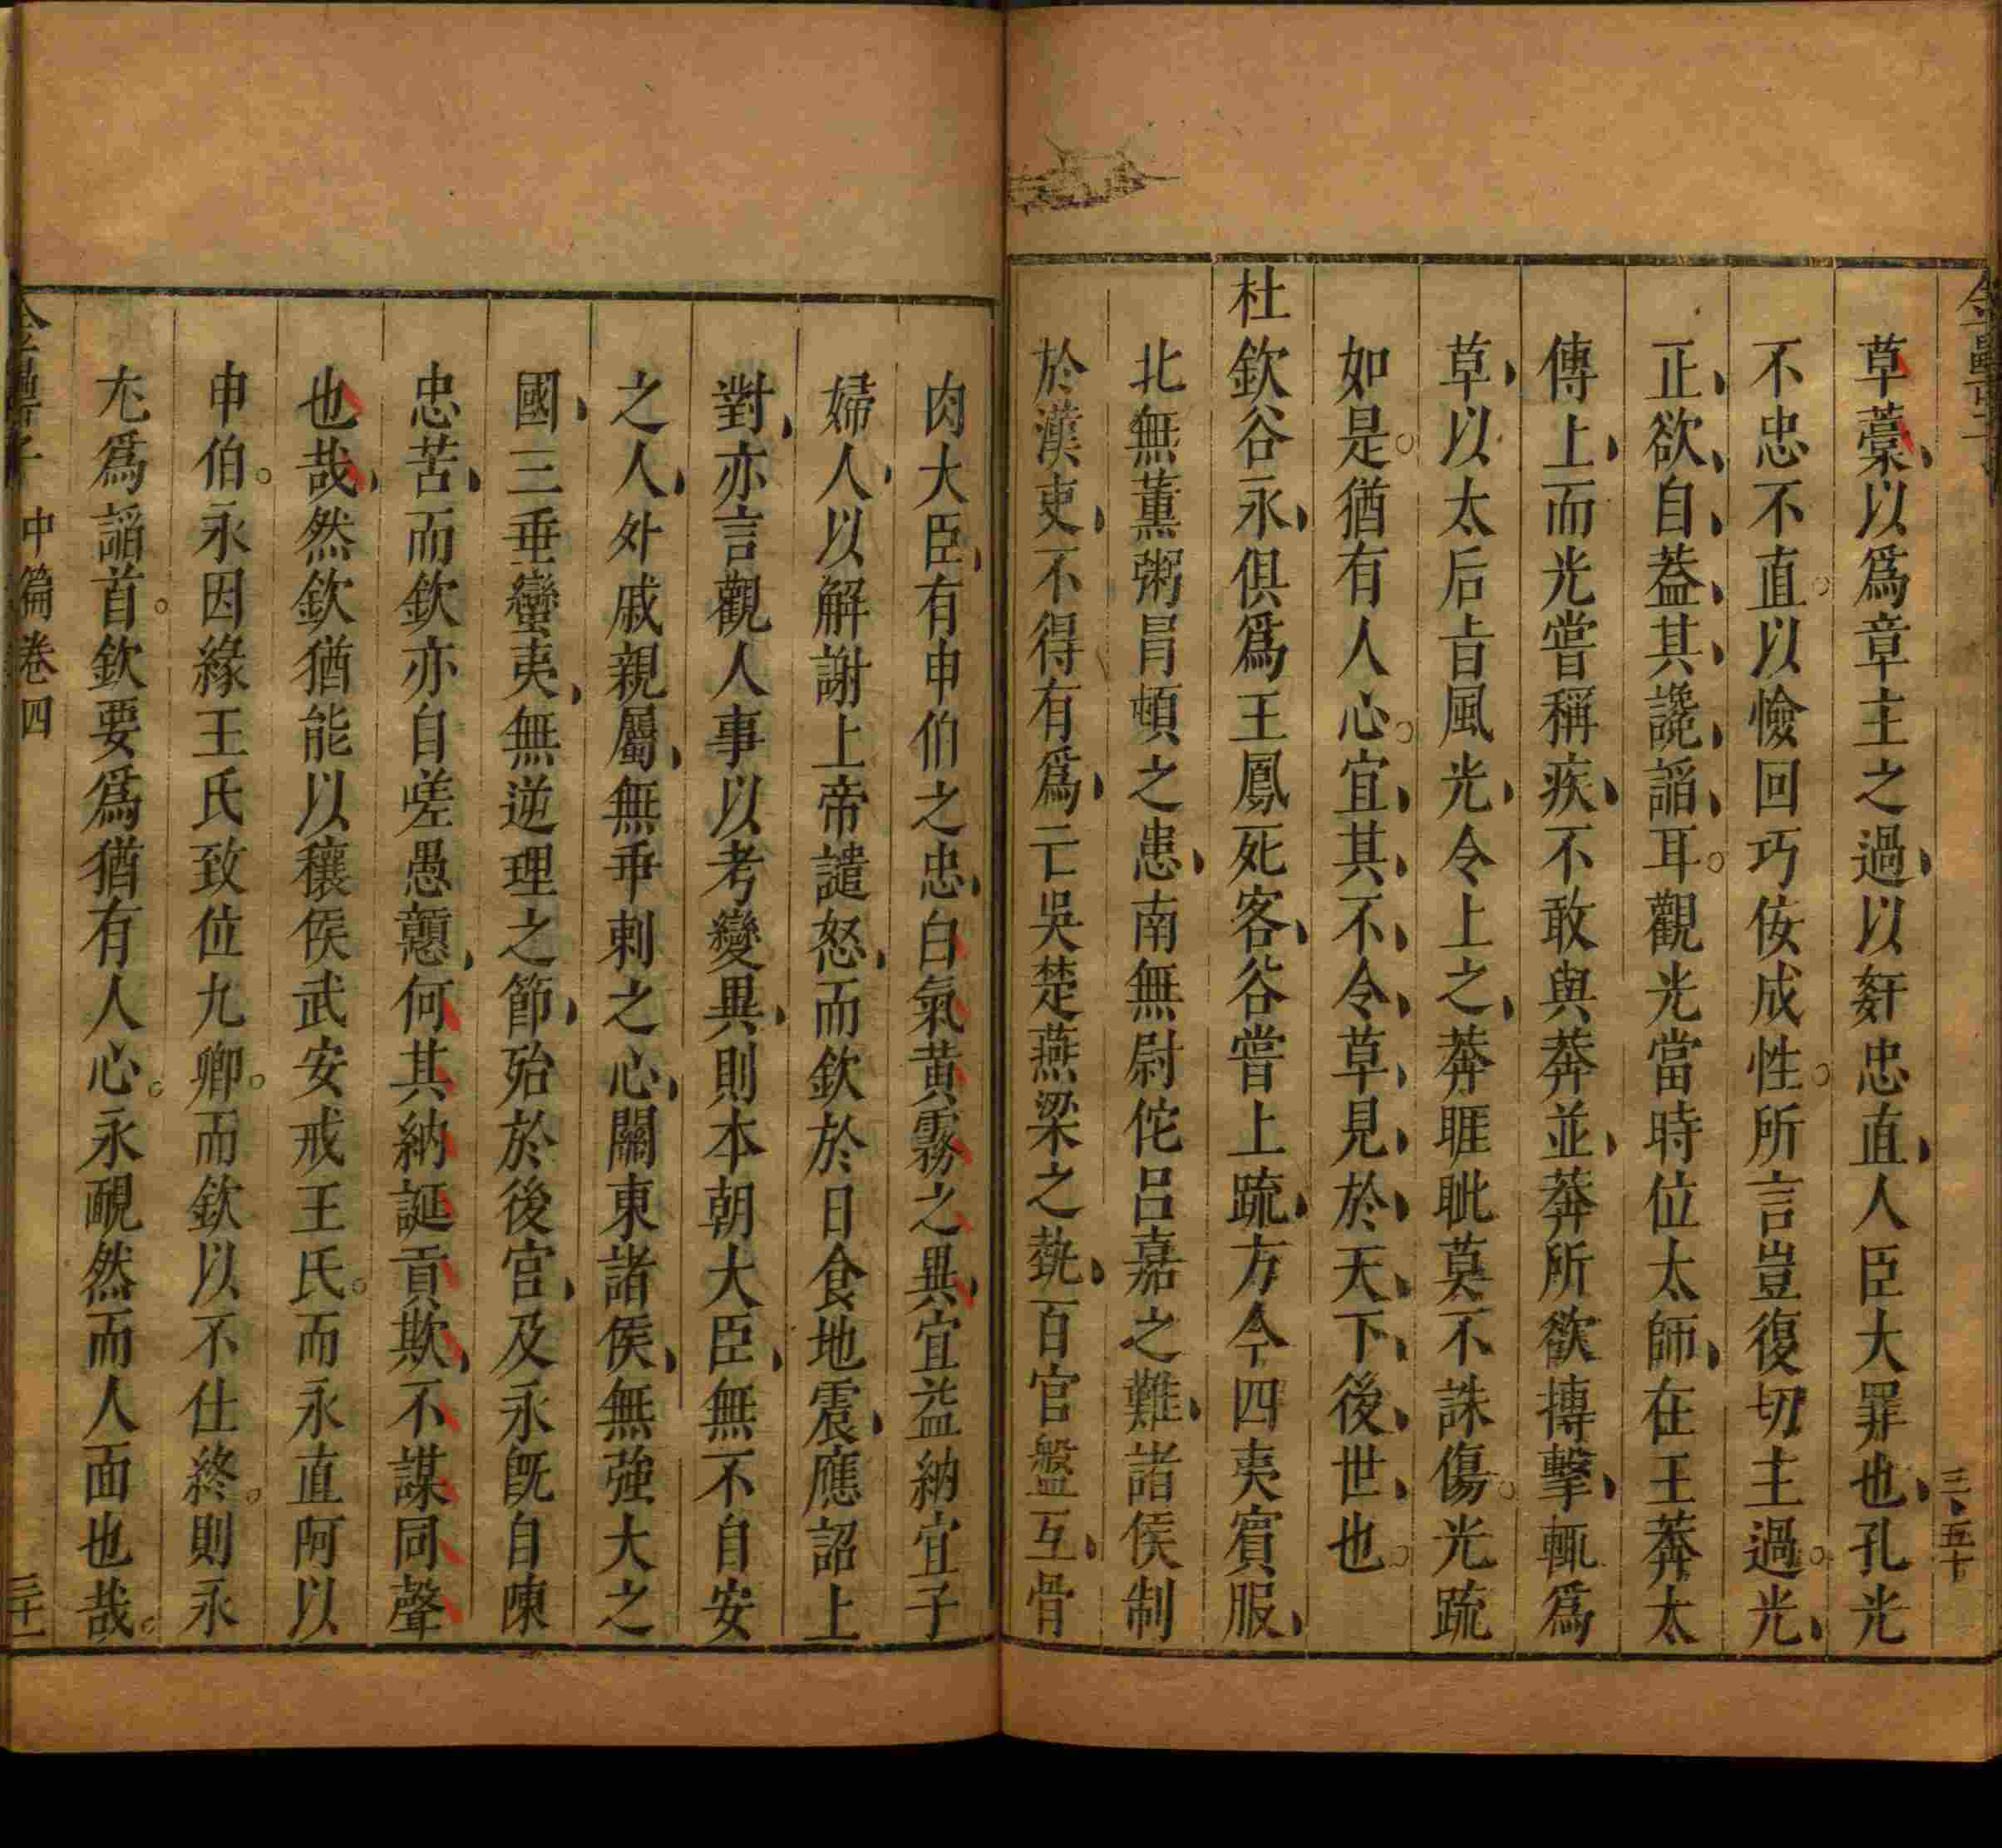 草藁以爲章主之過以奸忠直人臣大罪也孔光
不忠不直以憸回巧佞成性所言豈復切主過光
正欲自葢其讒謟耳觀光當時位太師在王莽太
傅上而光嘗稱疾不敢與莽並莽所欲搏擊輒爲
草以太后㫖風光令上之莽睚眦莫不誅傷光疏
如是猶有人心宜其不令草見於天下後世也
杜欽谷永俱爲王鳳死客谷嘗上疏方今四夷賓服
北無薰粥冒頓之患南無尉佗呂嘉之難諸侯制
於漢吏不得有爲亡吳楚燕梁之埶百官盤互骨
肉大臣有申伯之忠白氣黄霧之異宜益納宜子
婦人以解謝上帝譴怒而欽於日食地震應詔上
對亦言觀人事以考變異則本朝大臣無不自安
之人外戚親屬無乖剌之心關東諸侯無強大之
國三垂蠻夷無逆理之節殆於後宫及永旣自陳
忠苦而欽亦自嗟愚戇何其納誕貢欺不謀同聲
也哉然欽猶能以穰侯武安戒王氏而永直阿以
申伯永因緣王氏致位九卿而欽以不仕終則永
尤爲謟首欽要爲猶有人心永靦然而人面也哉
中篇卷四